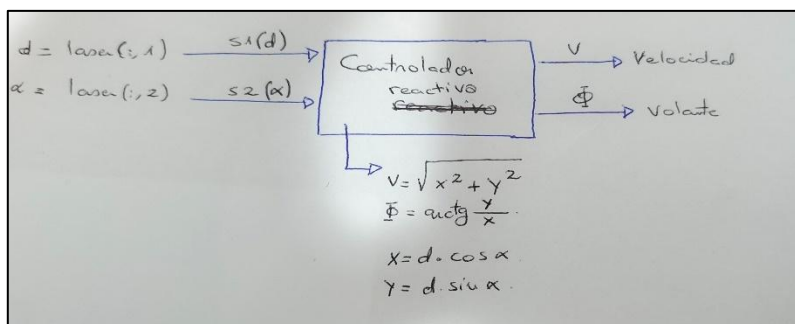 d = laser(:,1) s1(d)
α = laser(:,2) s2(α)
Controlador
reactivo
V Velocidad
Φ Volante
V = √x² + y²
Φ = arctg y/x.
X = d. cos α.
Y = d. sin α.